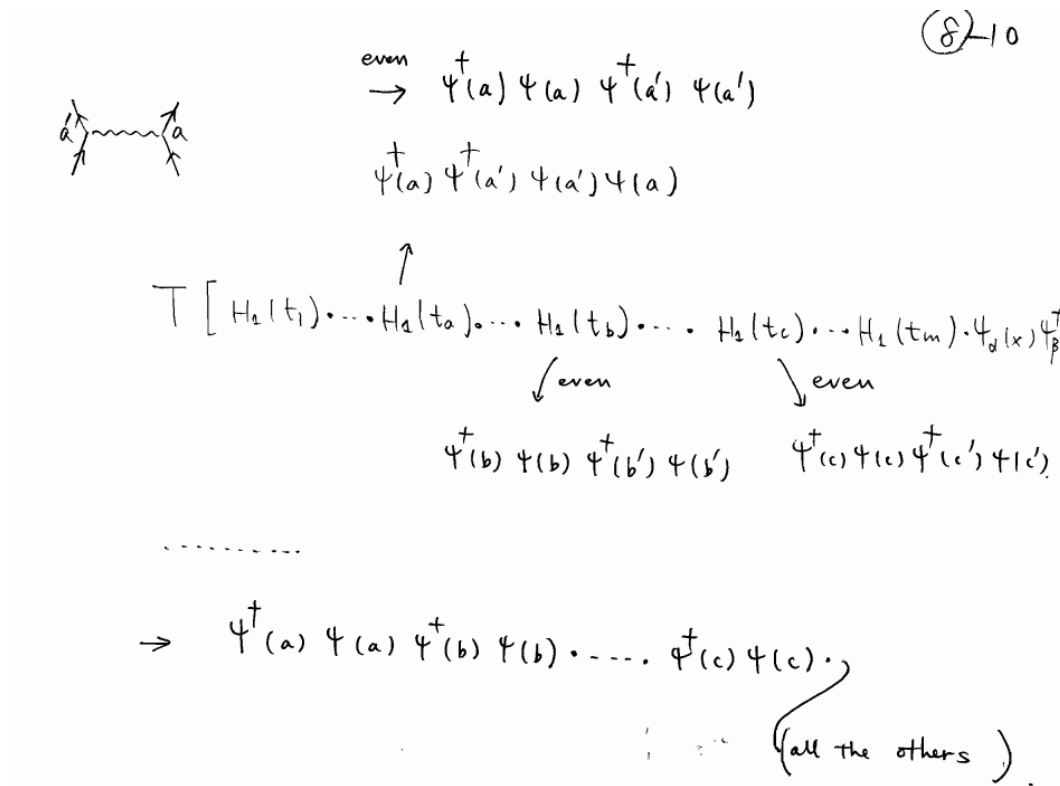 ⑧-10
even → ψ†(a) ψ(a) ψ†(a′) ψ(a′)
a′ a
ψ†(a) ψ†(a′) ψ(a′) ψ(a)
↑
T [ H₁(t₁)⋯H₁(tₐ)⋯ H₁(t_b)⋯ H₁(t_c)⋯H₁(t_m)·ψ_α(x) ψ†_β
↙ even ↘ even
ψ†(b) ψ(b) ψ†(b′) ψ(b′) ψ†(c) ψ(c) ψ†(c′) ψ(c′).
..........
→ ψ†(a) ψ(a) ψ†(b) ψ(b) ⋯⋯ ψ†(c) ψ(c) ·
(all the others).